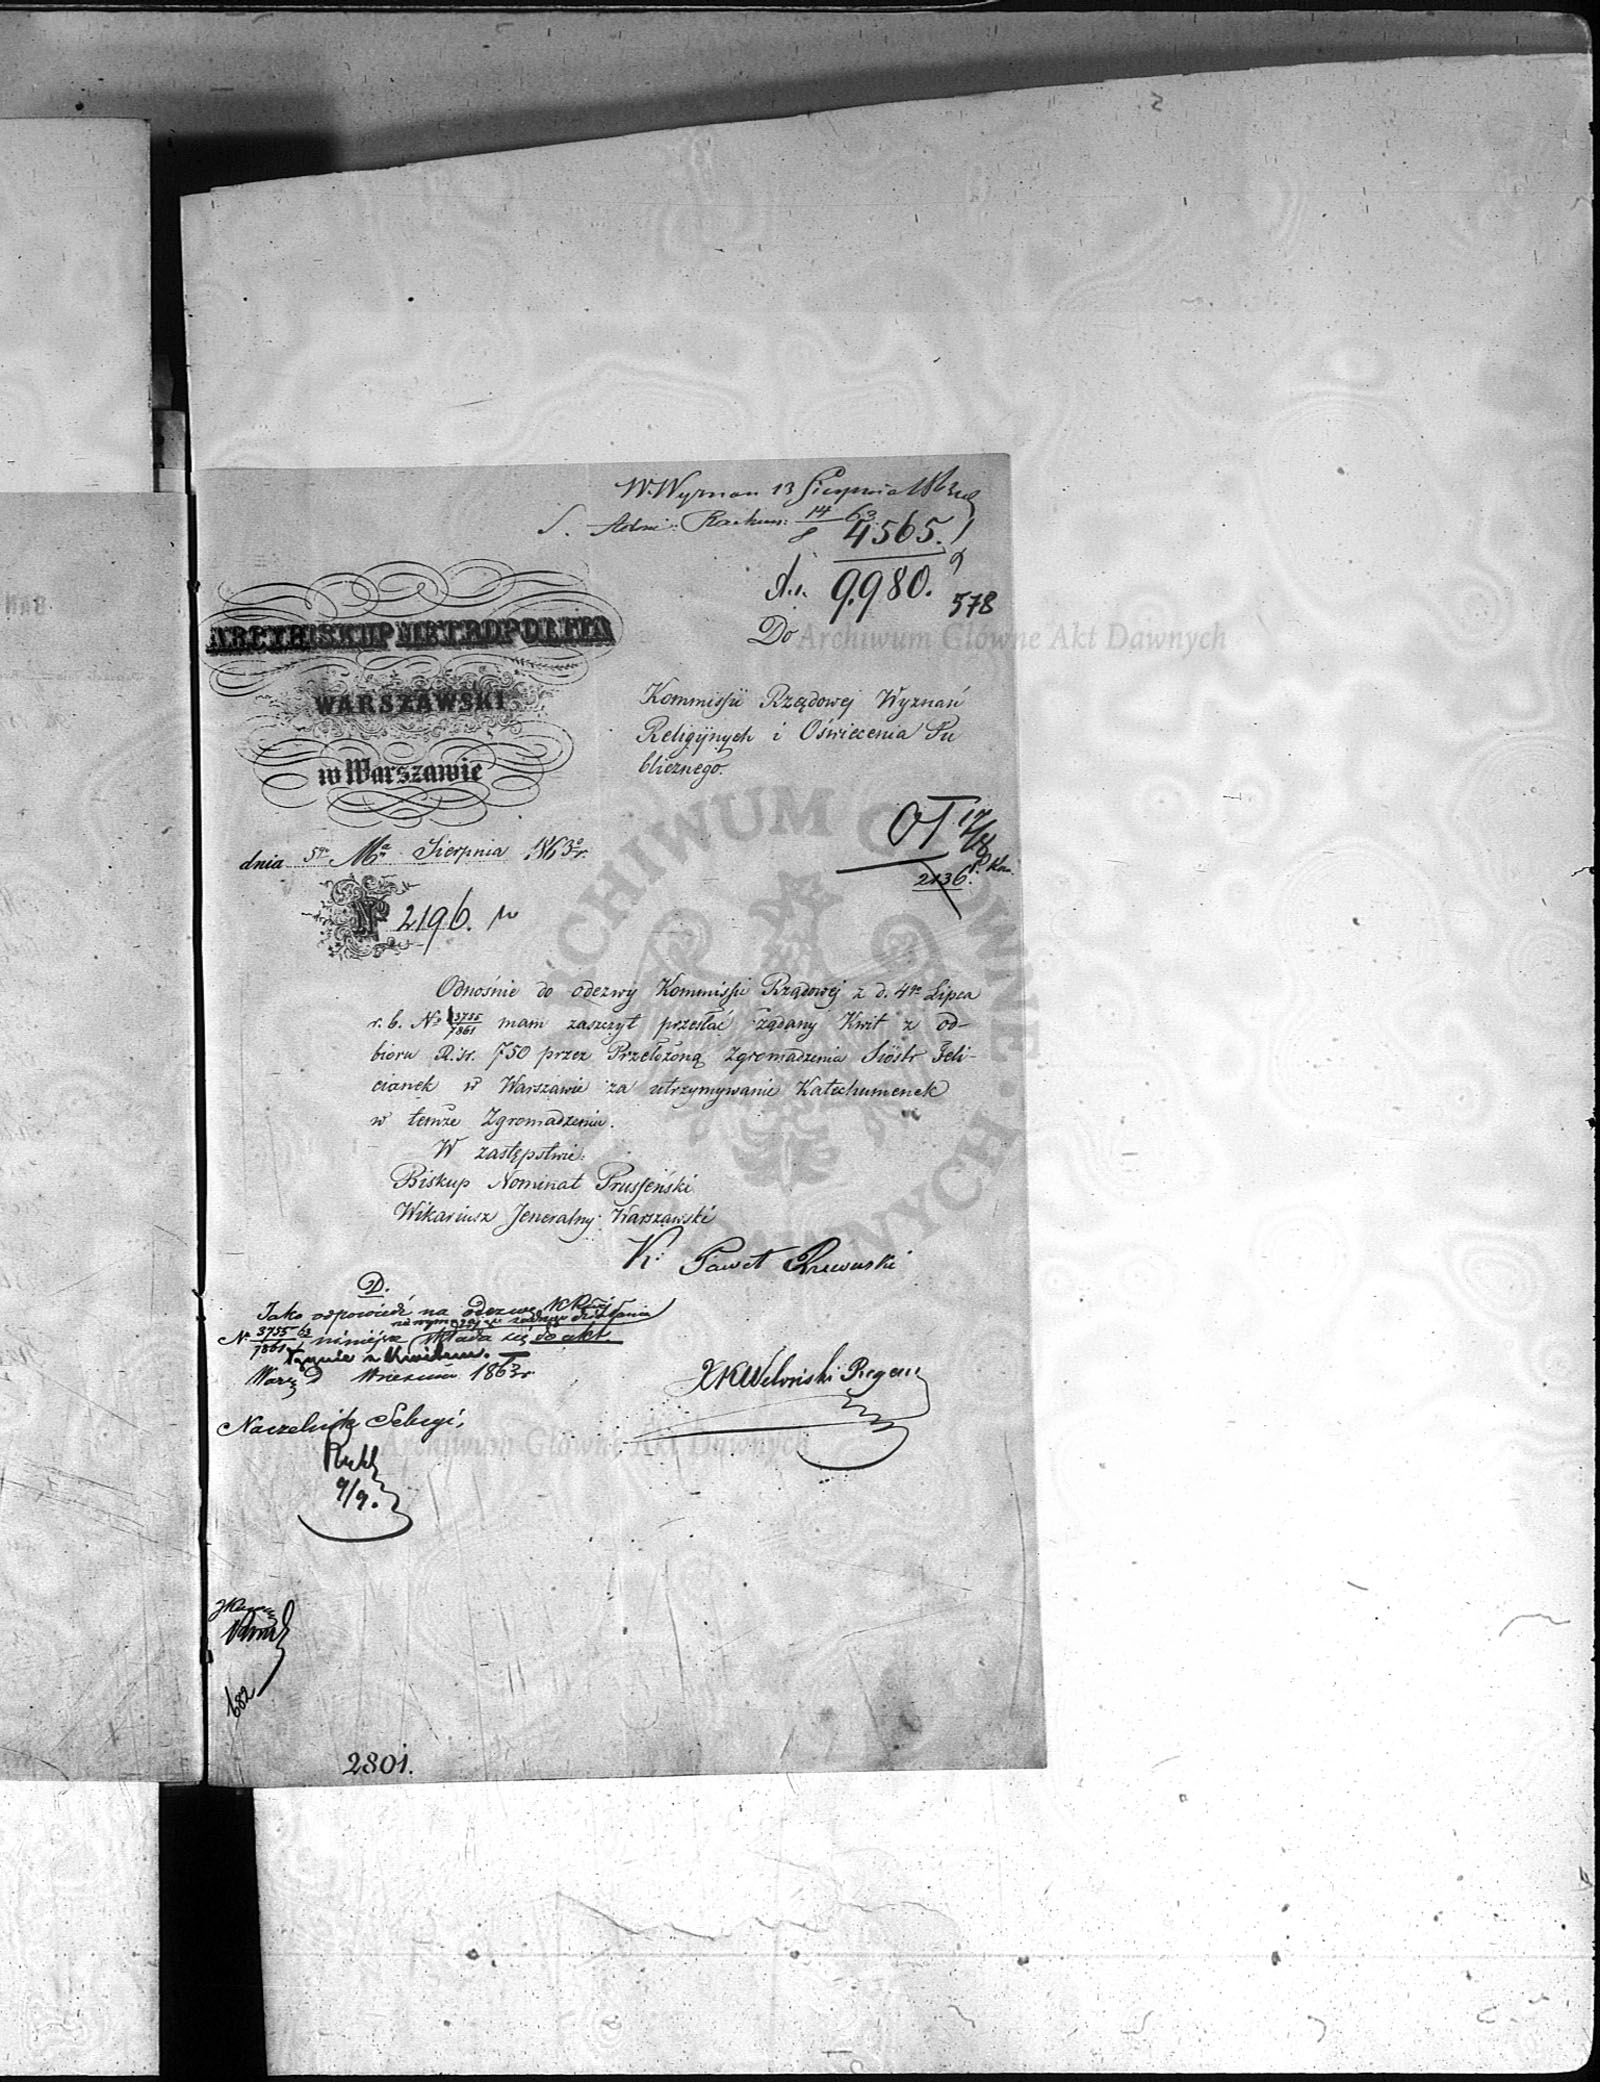 W. Wyznan 13 Sierpnia 1863
Rachun: 14/8 63
4565.
9.980.
578
Do
ARCYBISKUP METROPOLITA
WARSZAWSKI
w Warszawie
Kommissji Rządowej Wyznań
Religijnych i Oświecenia Pu
blicznego.
dnia 5go Mca Sierpnia 1863 r.
No 2196.
2136.
Odnośnie do odezwy Kommissji Rządowej z d. 4go Lipca
r. b. No 3755/7861 mam zaszczyt przesłać żądany Kwit z od-
bioru R. sr. 750 przez Przełożoną Zgromadzenia Sióstr Feli-
cianek w Warszawie za utrzymywanie Katechumenek
w temże Zgromadzeniu.
W zastępstwie:
Biskup Nominat Prusseński
Wikariusz Jeneralny Warszawski
X. Paweł Rzewuski
D.
Jako odpowiedź na odezwę
No 3755/7861 63 niniejsze składa się do akt.
Kwitem.
Września 1863 r.
Naczelnik Sekcyi,
9/9.
Regens
682
2801.
Archiwum Główne Akt Dawnych
Archiwum Główne Akt Dawnych
ARCHIWUM GŁÓWNE AKT DAWNYCH